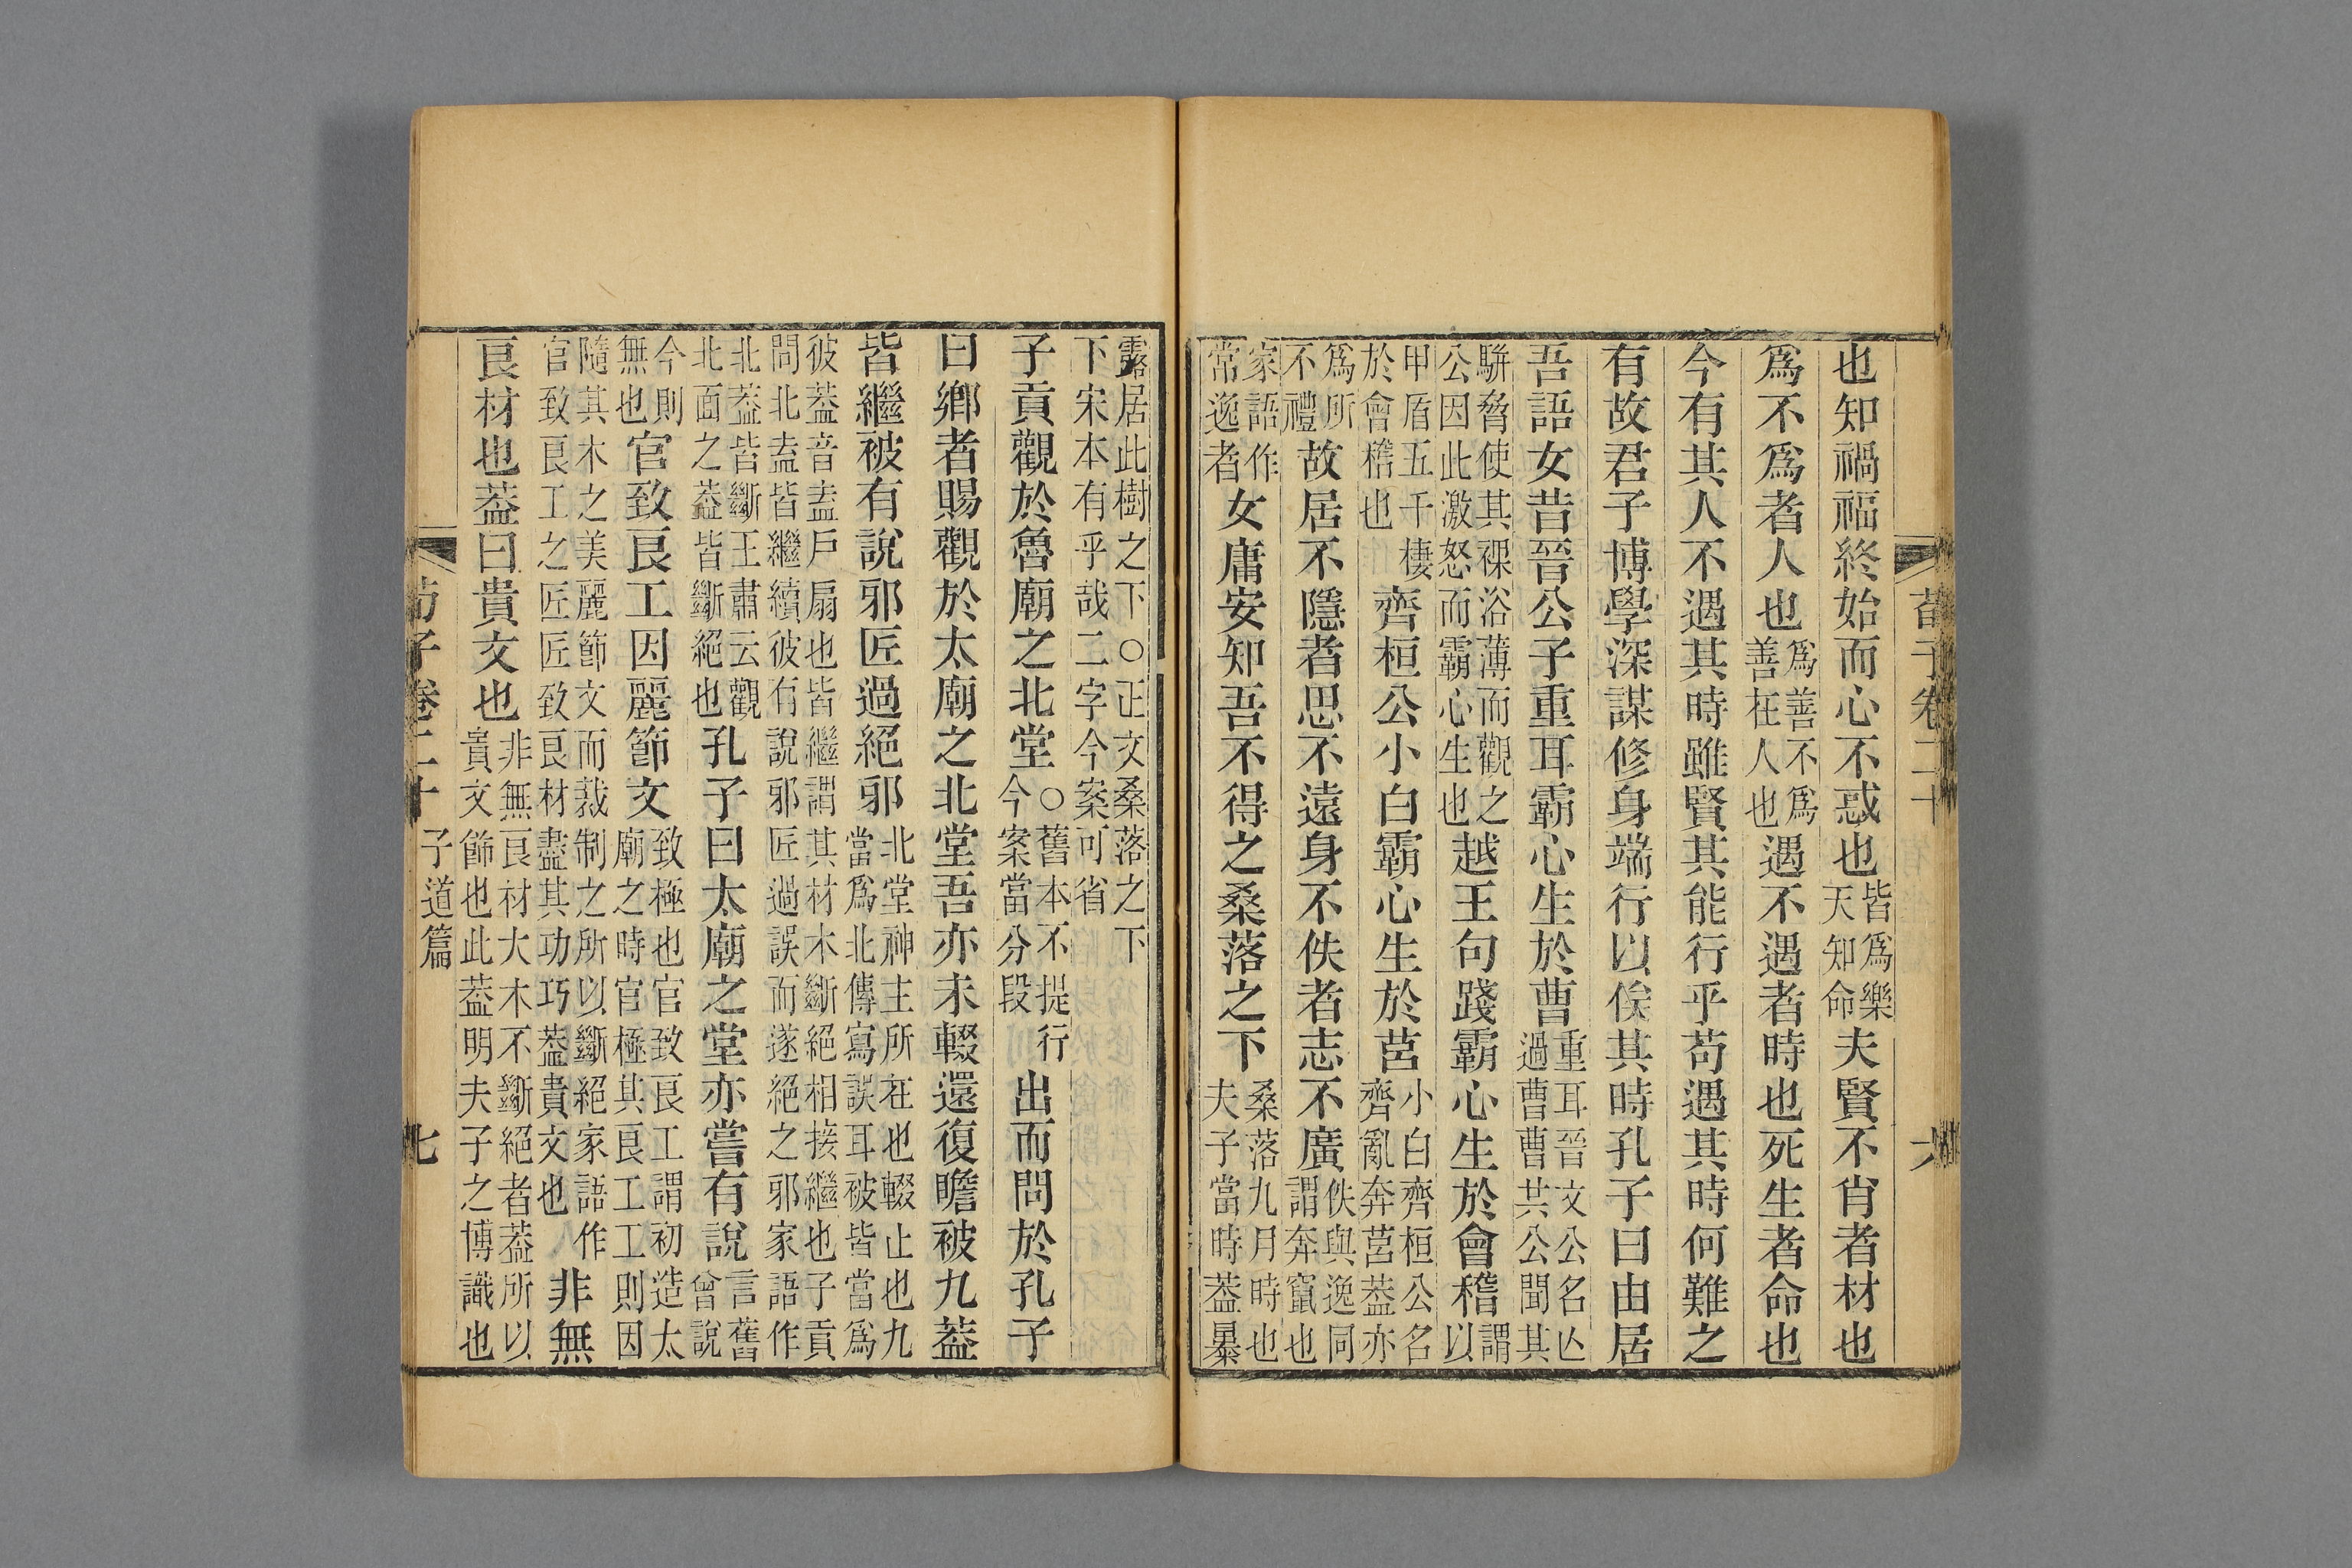 荀子卷二十 六
也知禍福終始而心不惑也皆爲樂天知命夫賢不肖者材也
爲不爲者人也爲善不爲善在人也遇不遇者時也死生者命也
今有其人不遇其時雖賢其能行乎苟遇其時何難之
有故君子博學深謀修身端行以俟其時孔子曰由居
吾語女昔晉公子重耳霸心生於曹重耳晉文公名亾過曹曹共公聞其
駢脅使其裸浴薄而觀之公因此激怒而霸心生也越王句踐霸心生於會稽謂以
甲盾五千棲於會稽也齊桓公小白霸心生於莒小白齊桓公名齊亂奔莒葢亦
爲所不禮故居不隱者思不遠身不佚者志不廣佚與逸同謂奔竄也
家語作常逸者女庸安知吾不得之桑落之下桑落九月時也夫子當時葢暴
露居此樹之下○正文桑落之下下宋本有乎哉二字今案可省
子貢觀於魯廟之北堂○舊本不提行今案當分段出而問於孔子
曰鄉者賜觀於太廟之北堂吾亦未輟還復瞻被九葢
皆繼被有說邪匠過絕邪北堂神主所在也輟止也九當爲北傳寫誤耳被皆當爲
彼葢音盍戶扇也皆繼謂其材木斷絕相接繼也子貢問北盍皆繼續彼有說邪匠過誤而遂絕之邪家語作
北葢皆斷王肅云觀北面之葢皆斷絕也孔子曰太廟之堂亦嘗有說言舊曾說
今則無也官致良工因麗節文致極也官致良工謂初造太廟之時官極其良工工則因
隨其木之美麗節文而裁制之所以斷絕家語作官致良工之匠匠致良材盡其功巧葢貴文也非無
良材也葢曰貴文也非無良材大木不斷絕者葢所以貴文節也此葢明夫子之博識也
荀子卷二十 子道篇 七